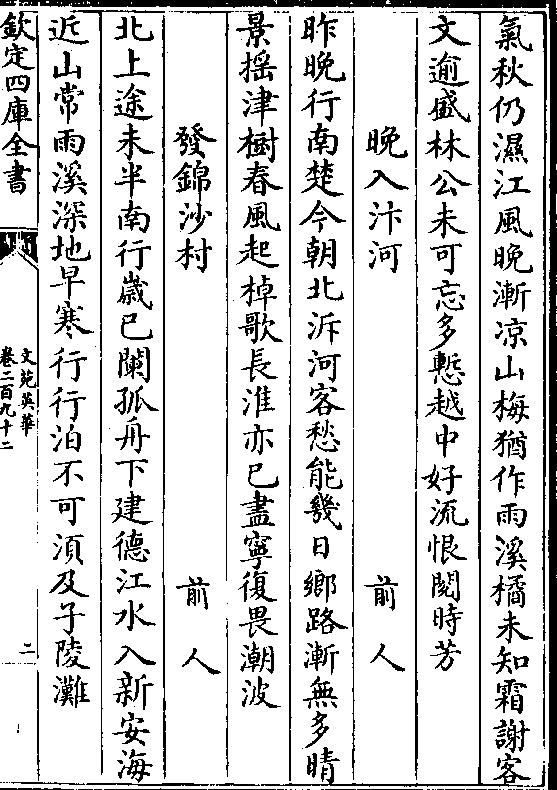 氣秋仍濕江風晚漸凉山梅猶作雨溪橘未知霜謝客
文逾盛林公未可忘多慙越中好流恨閱時芳
晚入汴河　前人
昨晚行南楚今朝北泝河客愁能幾日鄉路漸無多晴
景揺津樹春風起棹歌長淮亦已盡寧復畏潮波
發錦沙村　前人
北上途未半南行嵗已闌孤舟下建德江水入新安海
近山常雨溪深地早寒行行泊不可湏及子陵灘
欽定四庫全書
文苑英華
卷二百九十二
二